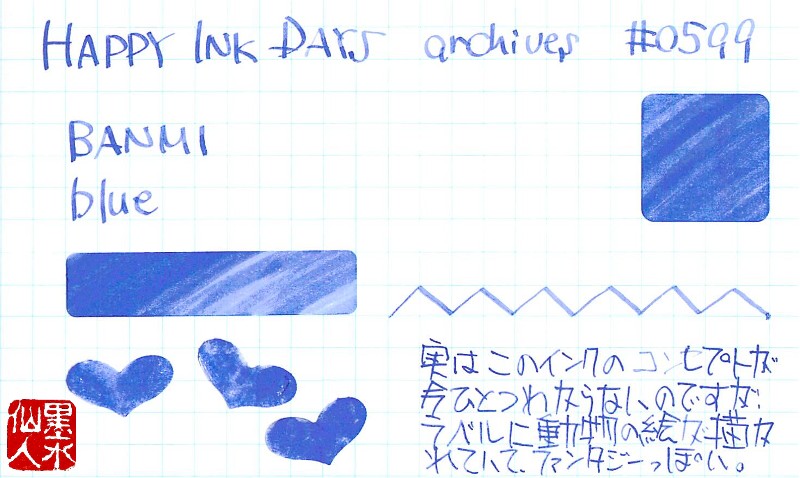 HAPPY INK DAYS archives #0599
BANMI
blue
実はこのインクのコンセプトが
今ひとつわからないのですが、
ラベルに動物の絵が描か
れていて、ファンタジーっぽい。
墨水
仙人